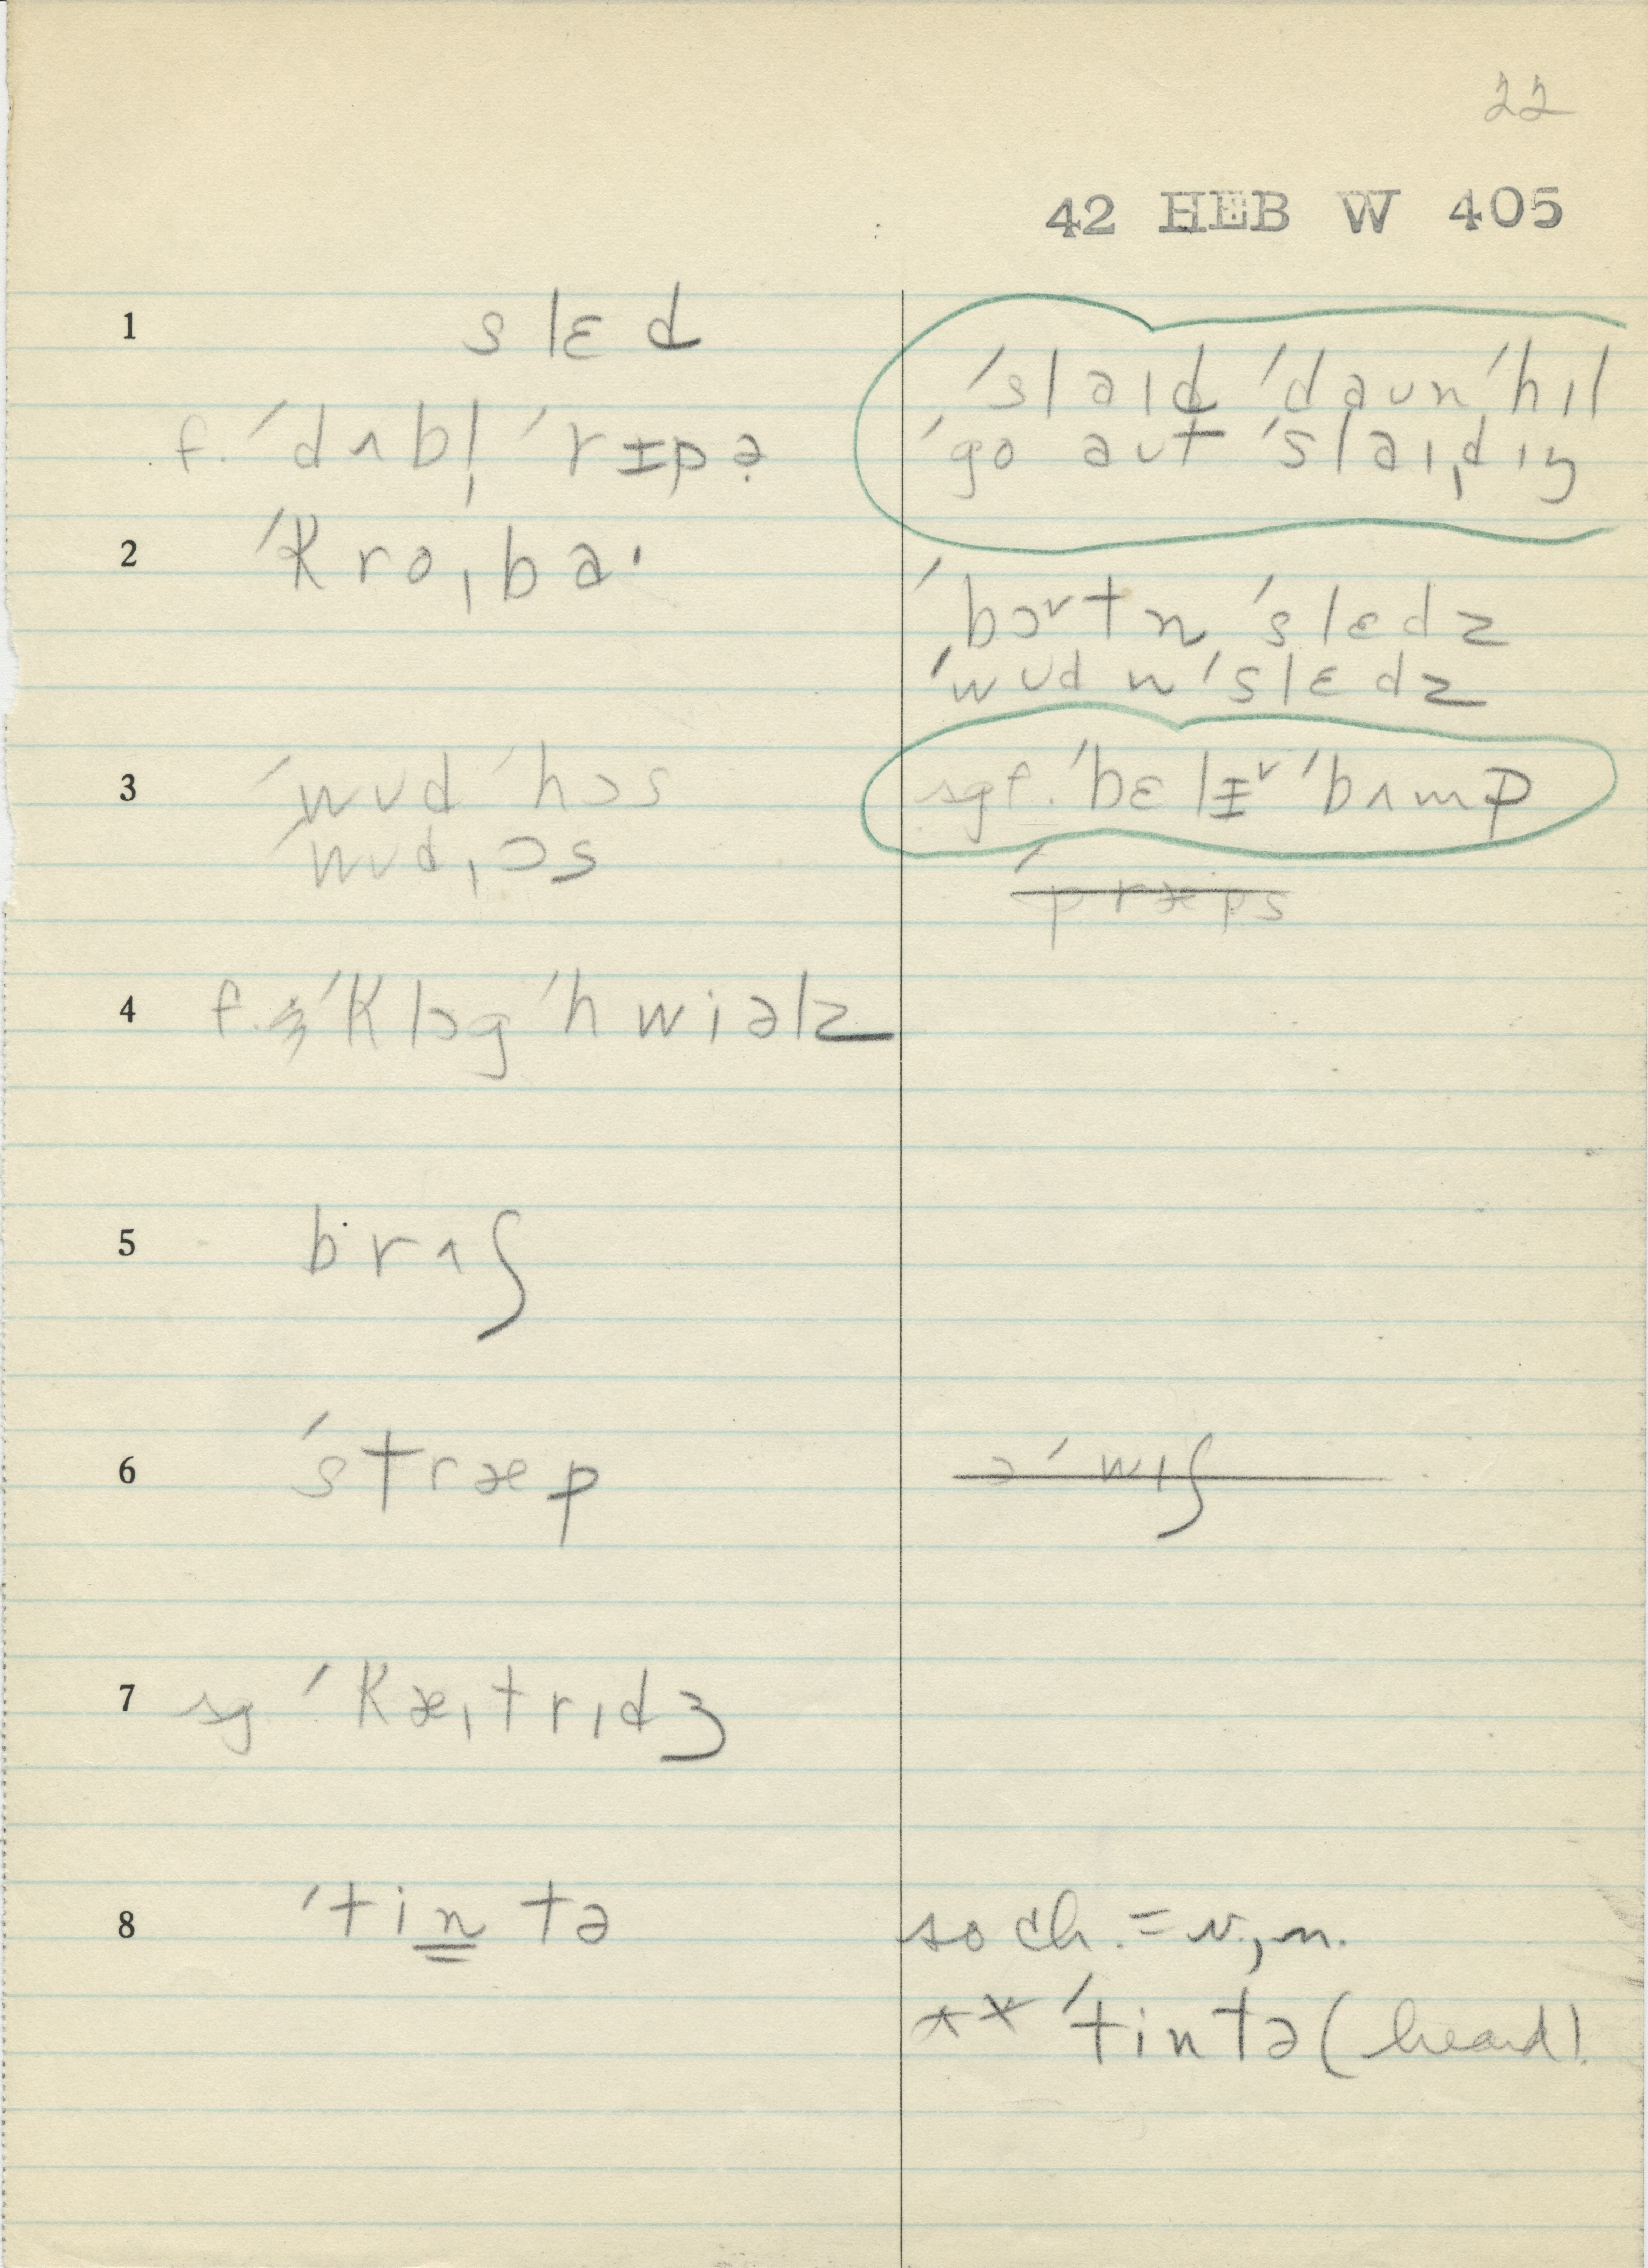 22
42 HEB W 405
1 slɛd
ˈslaɪd ˈdaʊnˌhɪl
f. ˈdʌbl̩ ˈrɪpə
ˈgo aʊt ˈslaɪˌdɪŋ
2 ˈkroˌba·
ˈbɔrtn ˈslɛdz
ˈwʊdn ˈslɛdz
3 ˈwʊd ˈhɔs
sgf. ˈbɛlɪ ˈbʌmp
ˈwʊdˌɔs
ˈpræps
4 f. ˈklɔg ˈhwiəlz
5 brʌʃ
6 ˈstræp
əˈwɪʃ
7 sg ˈkæˌtrɪdʒ
8 ˈtintə
so ch. = v., n.
** ˈtintə (heard).